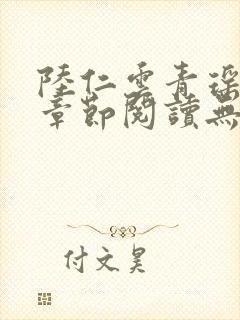 陸仁雲青瑶
章節閱讀無
付文昊